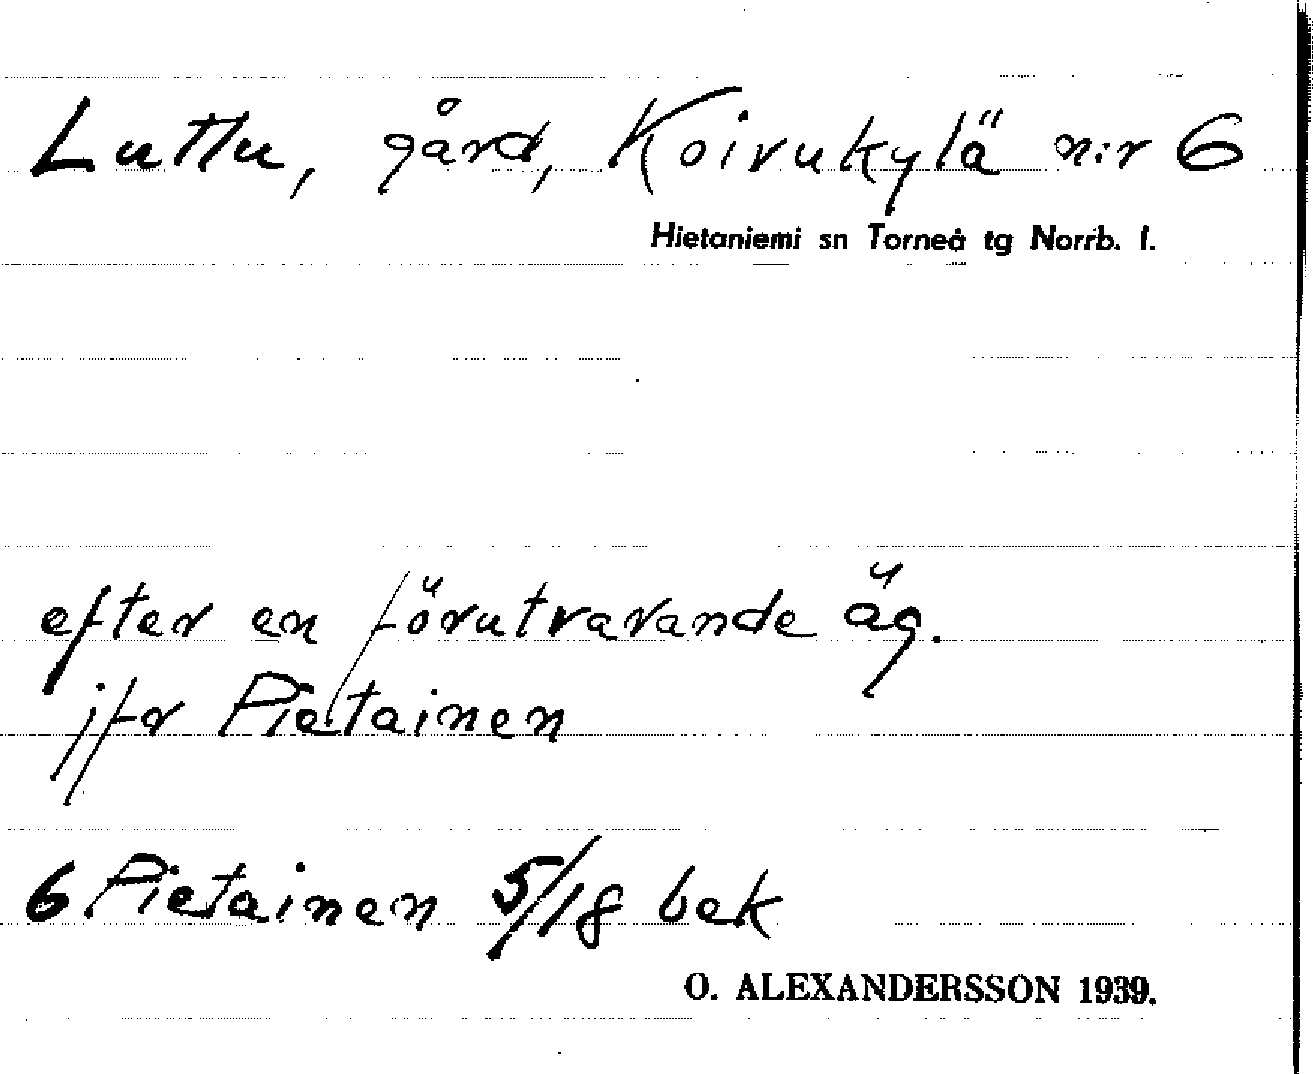 Luttu, gård, Koivukylä n:r 6
Hietaniemi sn Torneå tg Norrb. l.
efter en förutvarande äg.
jfr Pietainen
6 Pietainen 5/18 bek
O. ALEXANDERSSON 1939.